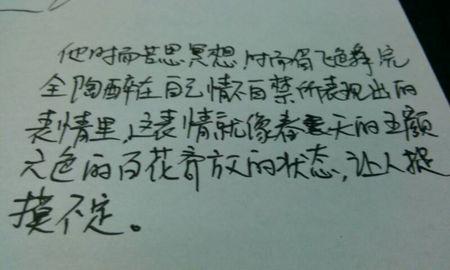 他时而苦思冥想,时而眉飞色舞,完
全陶醉在自己情不自禁所表现出的
表情里,这表情就像春天的五颜
六色的百花齐放的状态,让人捉
摸不定。